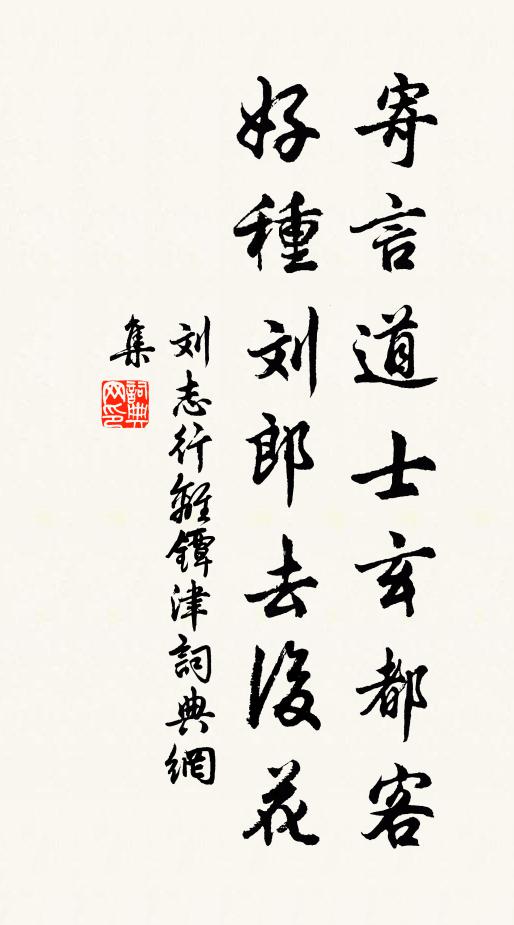 寄言道士玄都客
好種刘郎去後花
刘志行離鐔津詞典網
集
詞典
网印